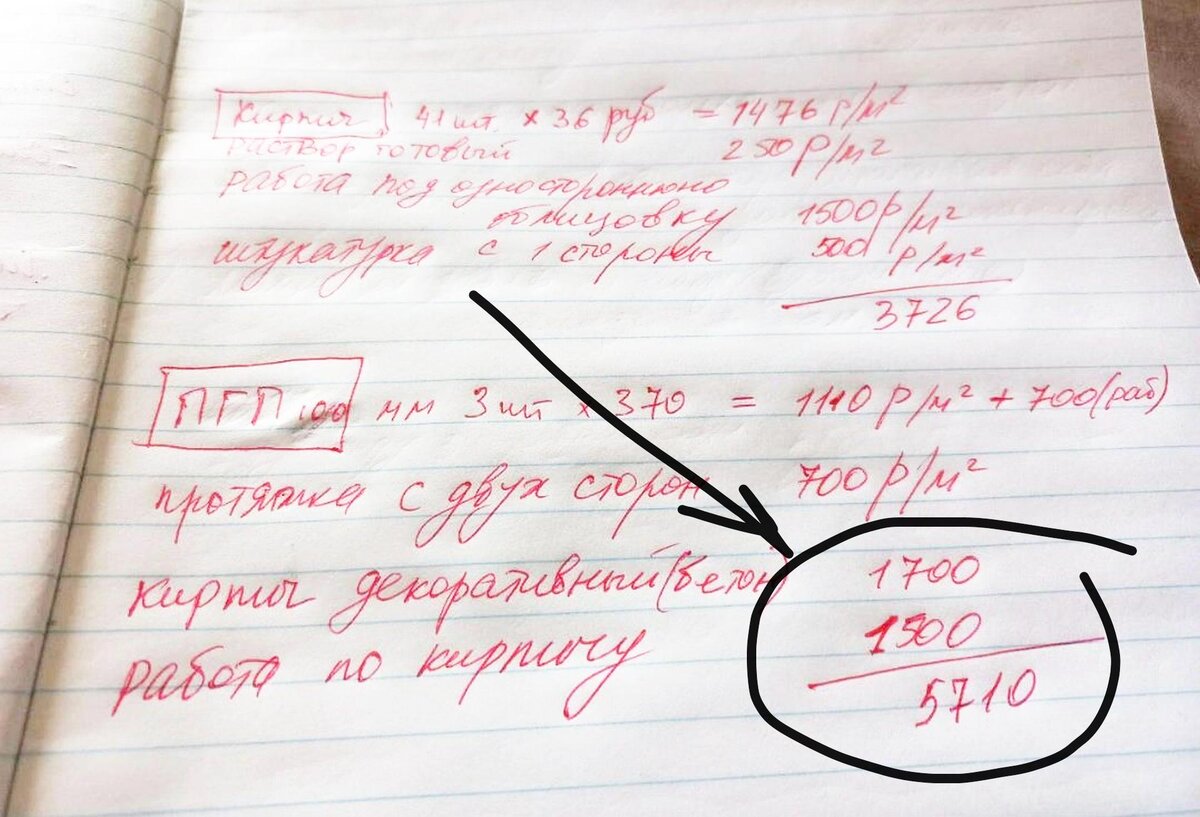 Кирпич 41 шт. × 36 руб = 1476 р/м²
раствор готовый 250 р/м²
работа под одностороннюю
облицовку 1500 р/м²
штукатурка с 1 стороны 500 р/м²
3726
ПГП 100 мм 3 шт × 370 = 1110 р/м² + 700 (раб)
протяжка с двух сторон 700 р/м²
кирпич декоративный (бетон) 1700
работа по кирпичу 1500
5710